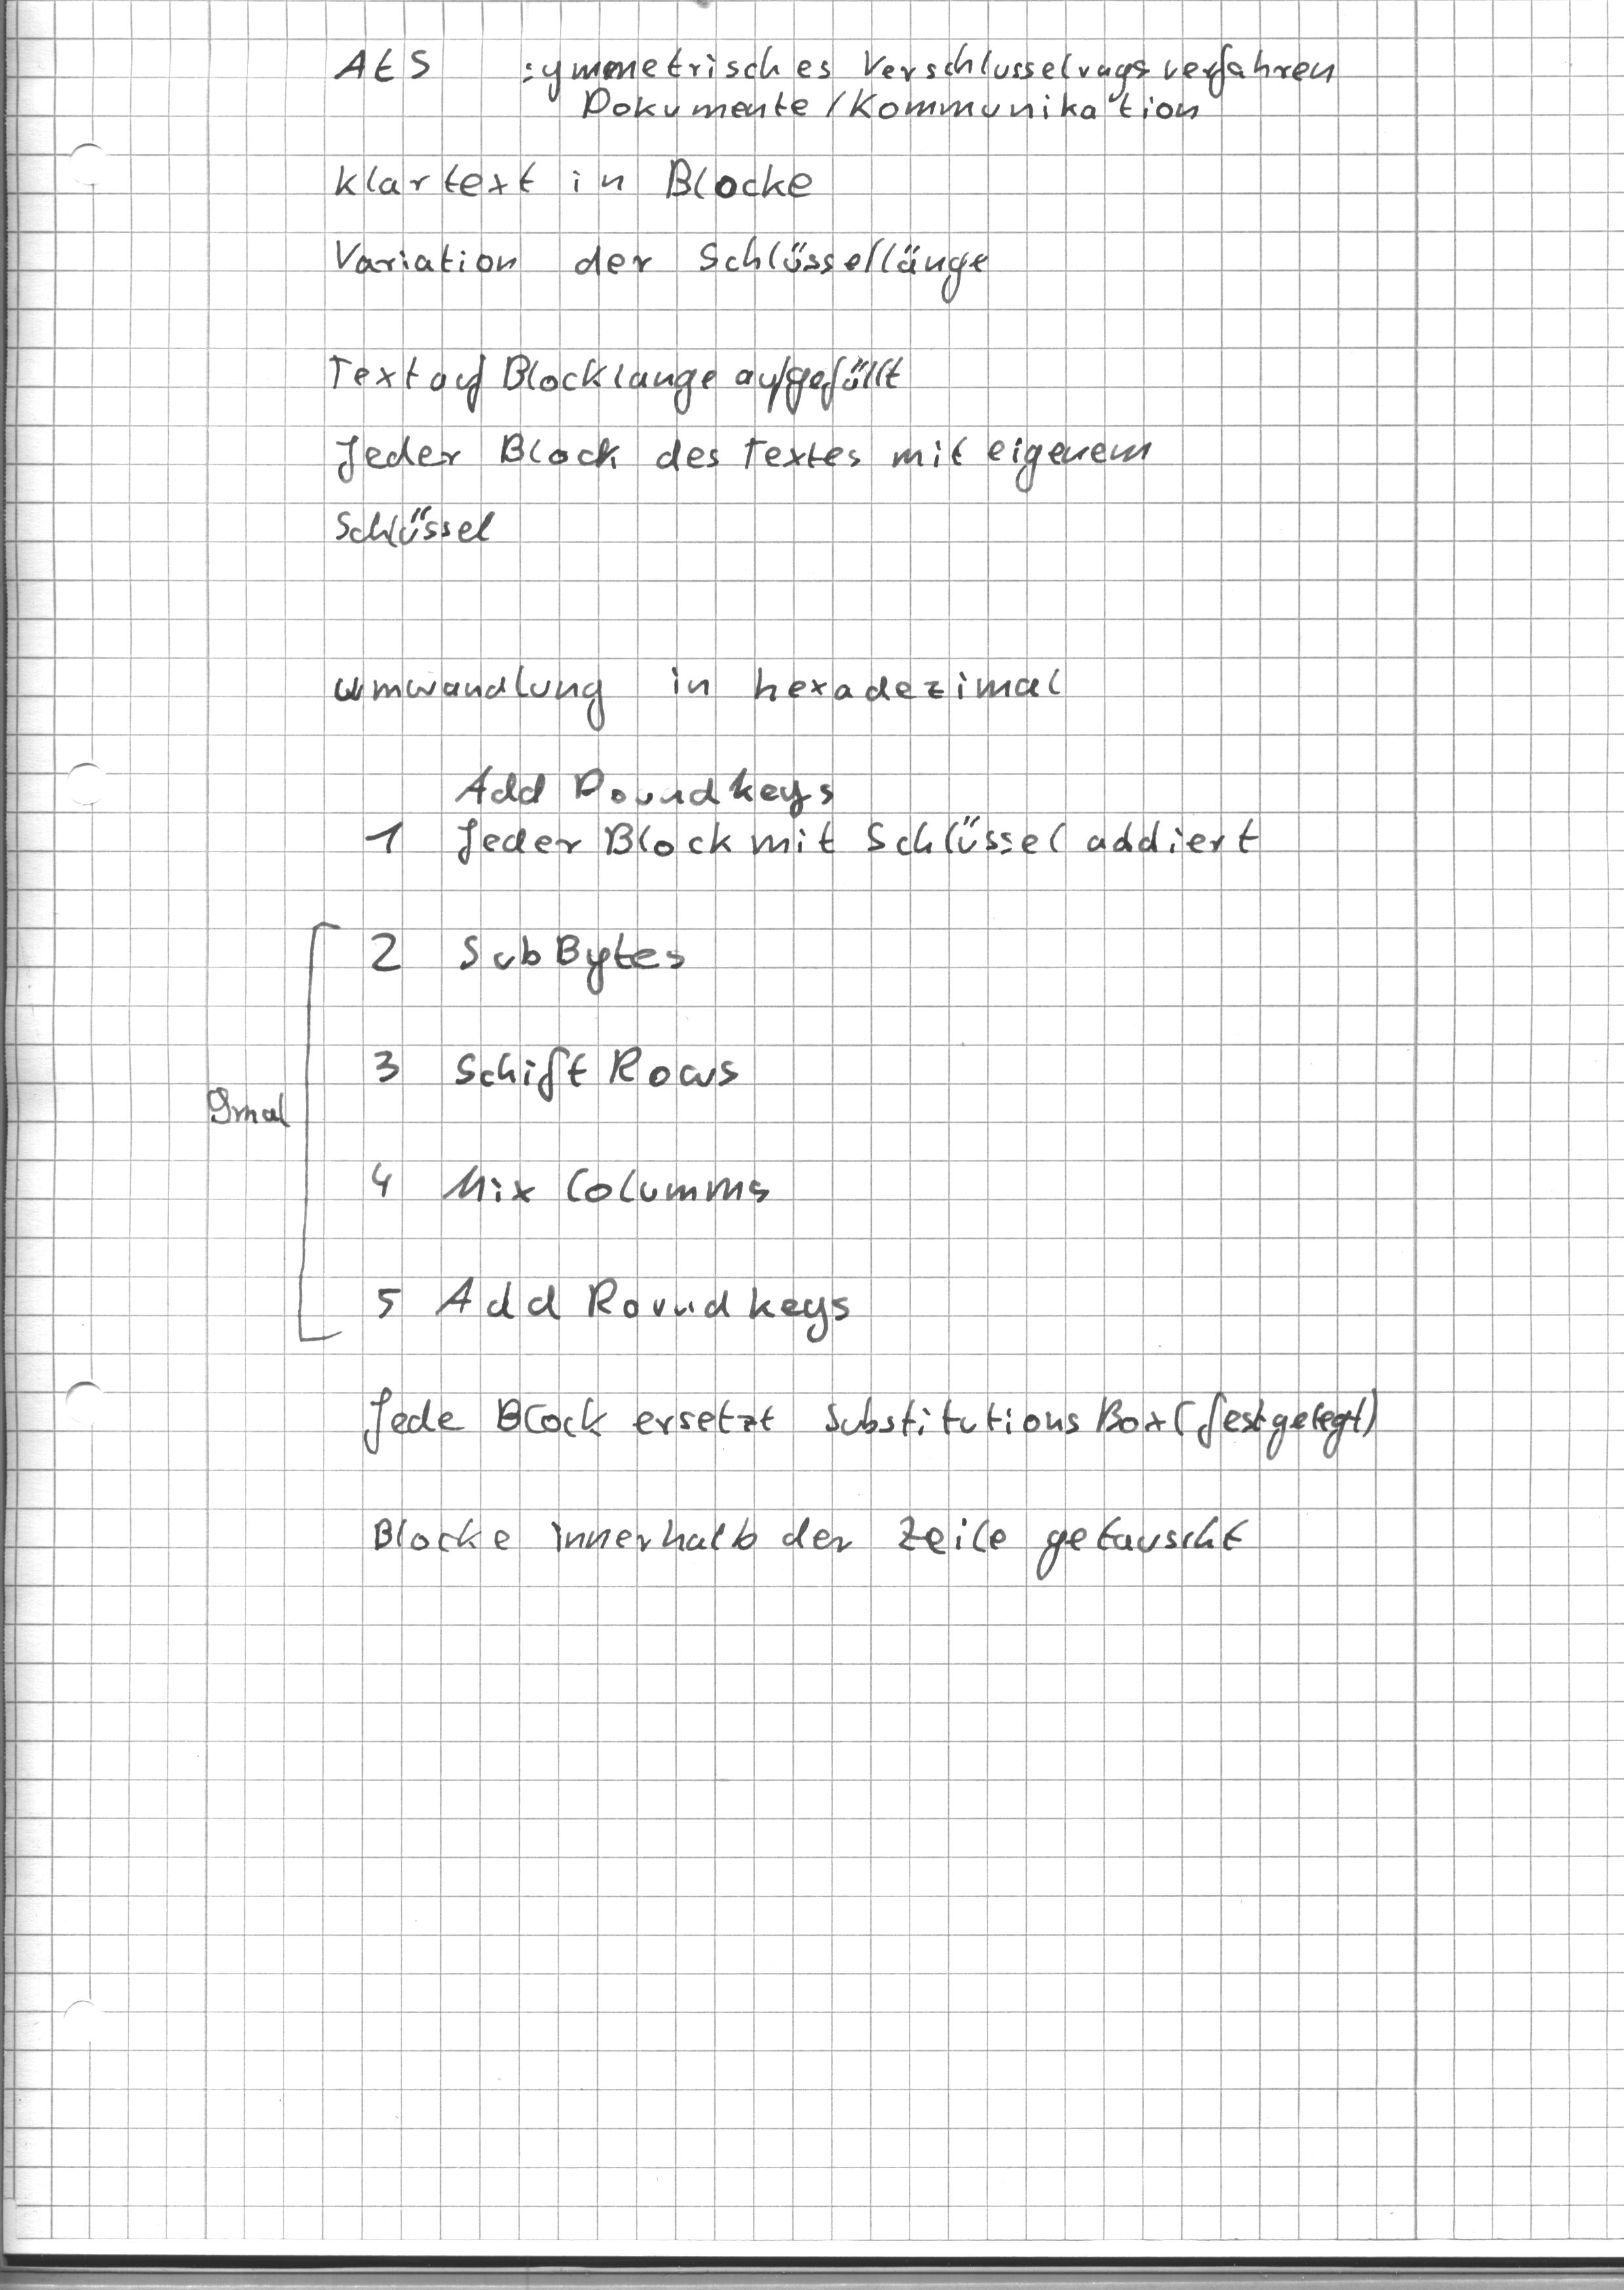 AES symmetrisches Verschlusselungsverfahren
Dokumente / Kommunikation
Klartext in Blocke
Variation der Schlüssellänge
Text auf Blocklange aufgefüllt
Jeder Block des Textes mit eigenem
Schlüssel
Umwandlung in hexadezimal
Add Roundkeys
1 Jeder Block mit Schlüssel addiert
2 SubBytes
3 Schift Rows
9mal
4 Mix Columms
5 Add Roundkeys
Jede Block ersetzt Substitutions Box (festgelegt)
Blocke innerhalb der Zeile getauscht